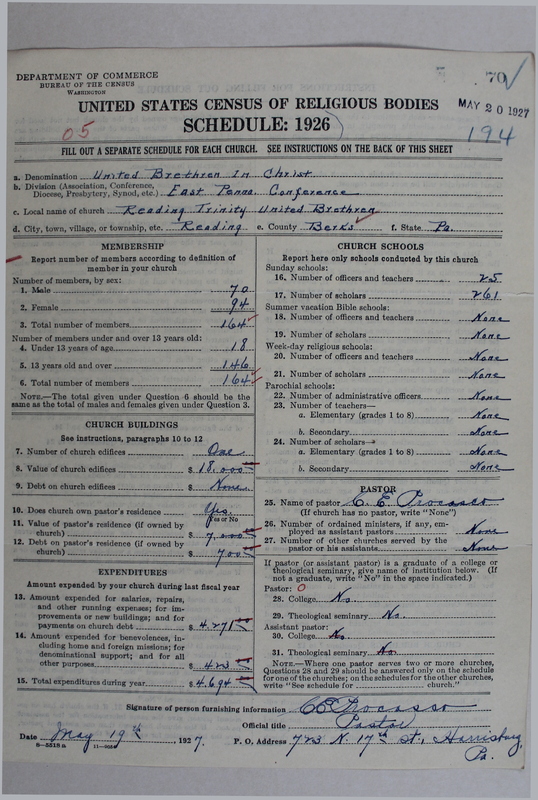 DEPARTMENT OF COMMERCE
BUREAU OF THE CENSUS
WASHINGTON
70
MAY 20 1927
194
UNITED STATES CENSUS OF RELIGIOUS BODIES
SCHEDULE: 1926
05
FILL OUT A SEPARATE SCHEDULE FOR EACH CHURCH. SEE INSTRUCTIONS ON THE BACK OF THIS SHEET
a. Denomination United Brethren In Christ
b. Division (Association, Conference, Diocese, Presbytery, Synod, etc.) East Penna. Conference
c. Local name of church Reading Trinity United Brethren
d. City, town, village, or township, etc. Reading e. County Berks f. State Pa.
MEMBERSHIP
Report number of members according to definition of
member in your church
Number of members, by sex:
1. Male 70
2. Female 94
3. Total number of members 164
Number of members under and over 13 years old:
4. Under 13 years of age 18
5. 13 years old and over 146
6. Total number of members 164
NOTE.—The total given under Question 6 should be
same as the total of males and females given under Question 3.
CHURCH BUILDINGS
See instructions, paragraphs 10 to 12
7. Number of church edifices One
8. Value of church edifices $ 18,000
9. Debt on church edifices $ None
10. Does church own pastor's residence? Yes.
(Yes or No)
11. Value of pastor's residence (if owned by
church) $ 7,000
12. Debt on pastor's residence (if owned by
church) $ 700
EXPENDITURES
Amount expended by your church during last fiscal year
13. Amount expended for salaries, repairs,
and other running expenses; for im-
provements or new buildings; and for
payments on church debt $ 4,271
14. Amount expended for benevolences, in-
cluding home and foreign missions; for
denominational support; and for all
other purposes $ 423
15. Total expenditures during year $ 4,694
CHURCH SCHOOLS
Report here only schools conducted by this church
Sunday schools:
16. Number of officers and teachers 25
17. Number of scholars 261
Summer vacation Bible schools:
18. Number of officers and teachers None
19. Number of scholars None
Week-day religious schools:
20. Number of officers and teachers None
21. Number of scholars None
Parochial schools:
22. Number of administrative officers None
23. Number of teachers—
a. Elementary (grades 1 to 8) None
b. Secondary None
24. Number of scholars—
a. Elementary (grades 1 to 8) None
b. Secondary None
PASTOR
25. Name of pastor C. E. Procasco
(If church has no pastor, write "None")
26. Number of ordained ministers, if any, em-
ployed as assistant pastors None
27. Number of other churches served by the
pastor or his assistants None
If pastor (or assistant pastor) is a graduate of a college or
theological seminary, give name of institution below. (If
not a graduate, write "No" in the space indicated.)
Pastor: 0
28. College No
29. Theological seminary No.
Assistant pastor:
30. College No
31. Theological seminary No.
NOTE.—Where one pastor serves two or more churches,
Questions 28 and 29 should be answered only on the schedule
for one of the churches; on the schedules for the other churches,
write "See schedule for church."
Signature of person furnishing information CE Procasco
Official title Pastor
Date May 19th, 1927. P. O. Address 723 N. 17th St., Harrisburg, Pa.
8—5518a